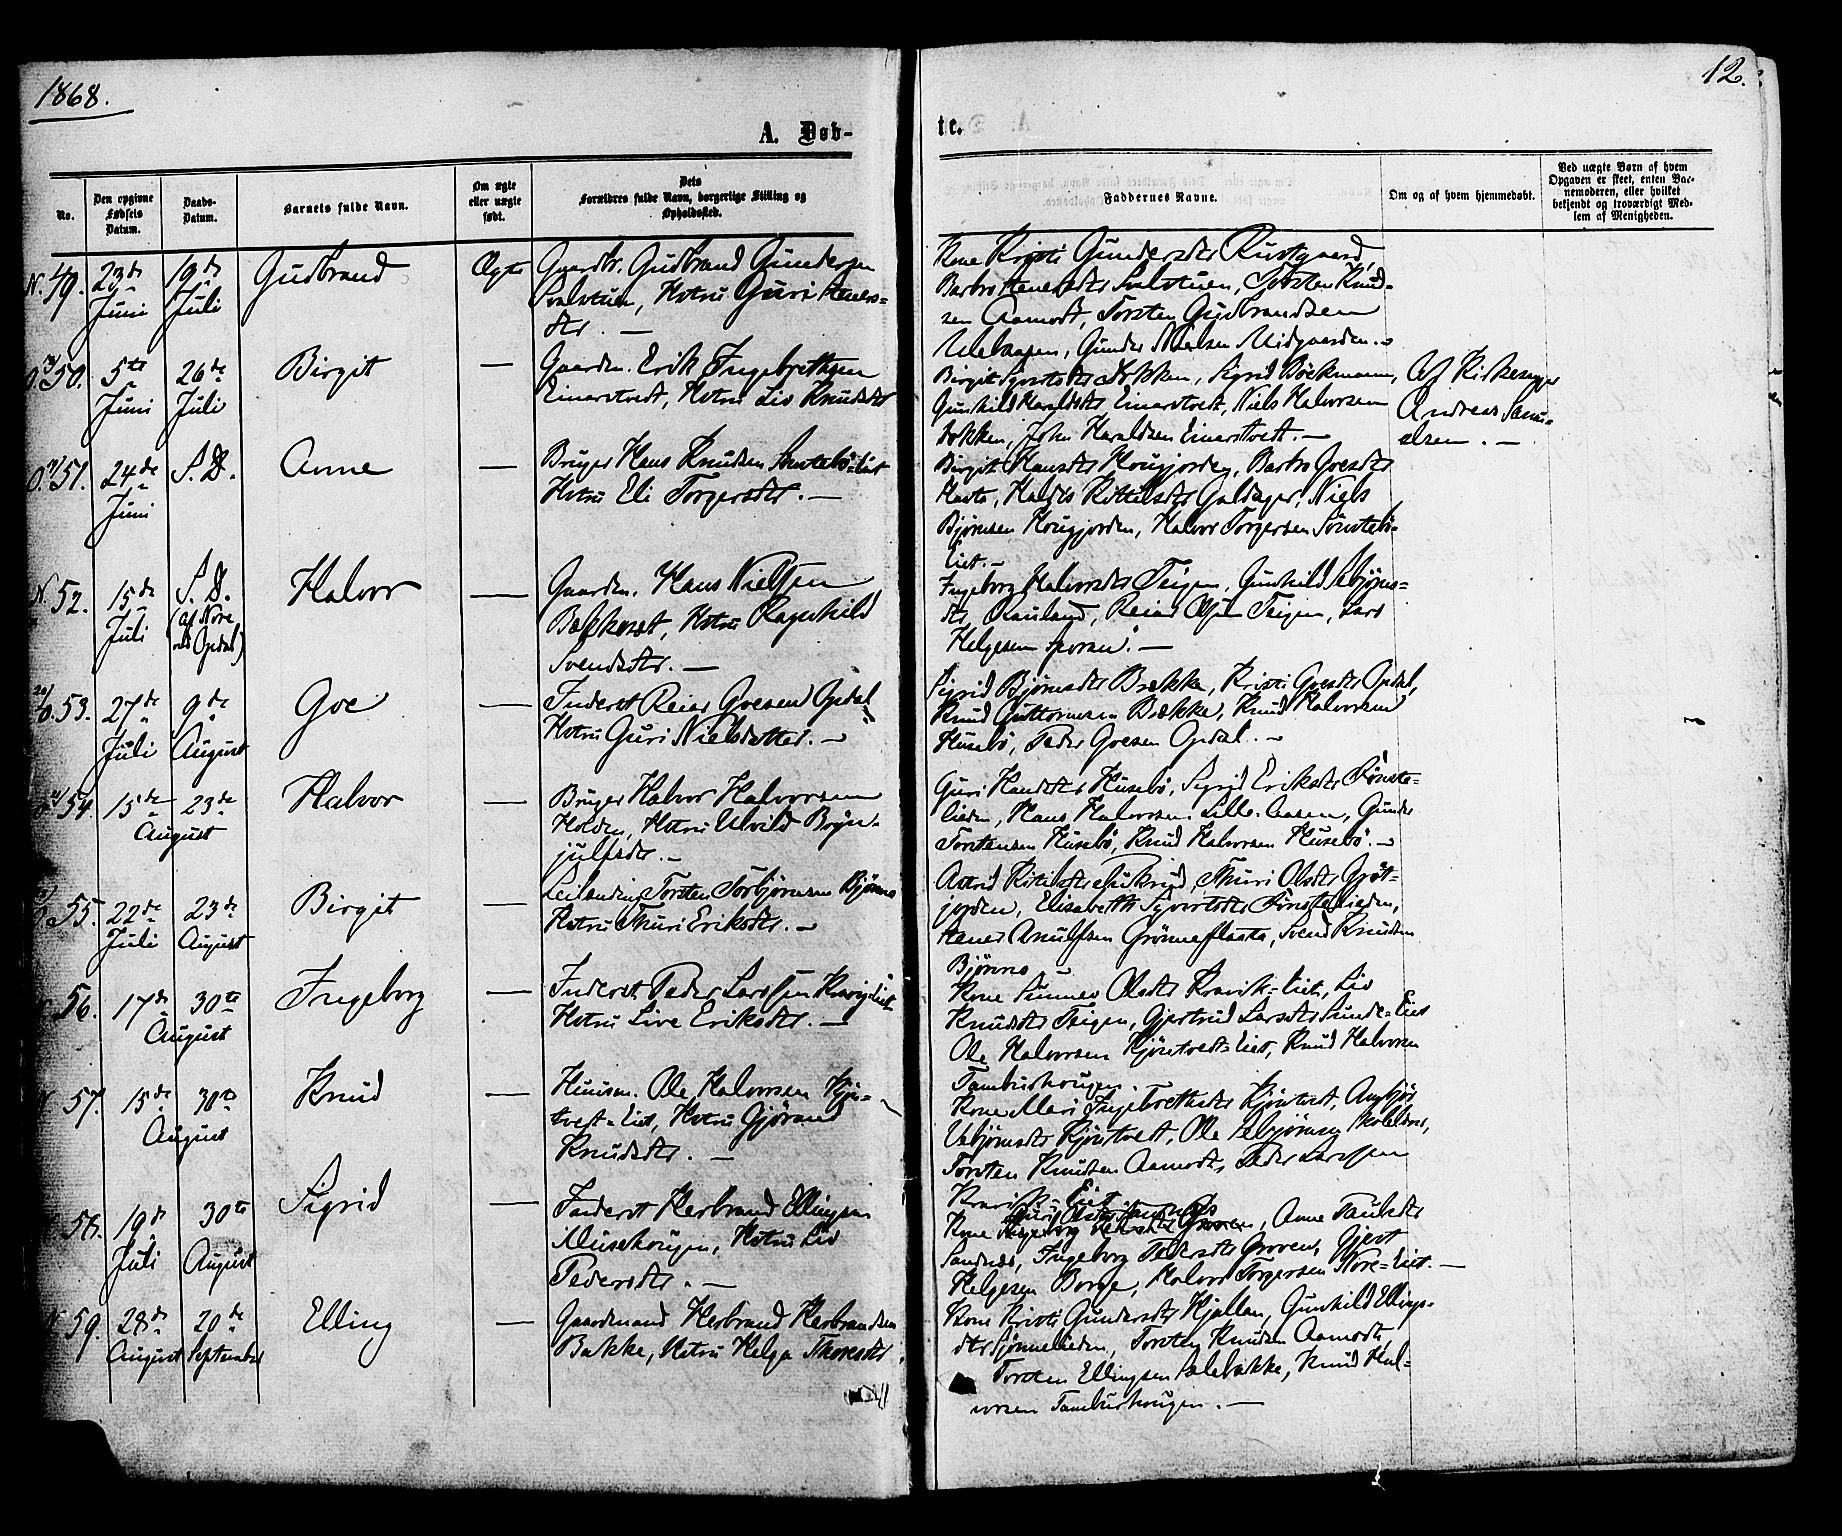 1868.
12.
A. Døb-
te.
No.
Den opgivne Fødsels Datum.
Daabs-Datum.
Barnets fulde Navn.
Om ægte eller uægte født.
Dets Forældres fulde Navn, borgerlige Stilling og Opholdssted.
Faddernes Navne.
Om og af hvem hjemmedøbt.
Ved uægte Børn af hvem Opgaven er skeet, enten Barnemoderen, eller hvilket bekjendt og troværdigt Medlem af Menigheden.
N. 49. 23de Juni 19de Juli Gudbrand Ægte
Gaardbr. Gudbrand Gundersen
Hstru Guri
dtr. —
Kone Kristi Gundersdtr Rustgaard,
Barbro Svalstuen, Torsten Knud-
sen Aamodt, Torsten Gudbrandsen
Gunder Nielsen Midgaarden. —
50. 5te Juni 26de Juli Birgit —
Gaardm. Erik Ingebrethsen
Einarstvedt, Hstru Liv Knudsdtr
Birgit Bekken, Sigrid Bøckmann,
Gunhild Haraldsdtr Einarstvedt, Niels Halvorsen
Bekken, John Haraldsen Einarstvedt. —
Af Kirkesanger
Andreas Samu-
elsen. —
51. 24de Juni S. D. Anne —
Bruger Hans Knudsen
Hstru Eli Torgersdtr. —
Birgit Hansdtr Hougjorden, Barbro Goesdtr
Kittilsdtr Niels
Bjørnsen Hougjorden, Halvor Torgersen Sønstebø-
Eiet. —
N. 52. 15de Juli S. D. (af Nore ved Opdal) Halvor —
Gaardm. Hans Nielsen
Hstru Ragnhild
Svendsdtr. —
Ingeborg Halvorsdtr Teigen, Gunhild Asbjørns-
dtr Rauland, Reiar Teigen, Lars
Helgesen —
53. 27de Juli 9de August Goe —
Inderst Reiar Goesen Opdal
Hstru Guri Nielsdatter. —
Sigrid Bjørnsdtr Brekke, Kristi Goesdtr Opdal,
Knud Guttormsen Bekke, Knud Halvorsen
Husebø, Peder Goesen Opdal. —
54. 15de 23de August Halvor —
Bruger Halvor Halvorsen
Holden, Hstru Ulvild Bryn-
julfsdtr. —
Guri Husebø, Sigrid Eriksdtr Fønste-
lieden, Hans Halvorsen Lille-Aasen, Gunder
Torstensen Husebø, Knud Halvorsen Husebø. —
55. 22de Juli 23de August Birgit —
Leilending Torsten Torbjørnsen Bjønno
Hstru Thuri Eriksdtr. —
Astrid Kittilsdtr Thuri Olsdtr Grøt-
jorden, Elisabeth Syvertsdtr Fønstelieden,
Arnulfsen Grønneflaata, Svend Knudsen
Bjønno —
56. 17de 30te August Ingeborg —
Inderst Peder Larssen Kravig-Eiet
Hstru Live Eriksdtr. —
Kone Sunnev Olsdtr Kravik-Eiet, Liv
Knudsdtr Teigen, Gjertrud Larsdtr Sunde-Eiet
Ole Halvorsen Kjøntvedt-Eiet, Knud Halvorsen
Tamburhougen.
57. 15de 30te August Knud —
Huusm. Ole Halvorsen Kjøn-
tvedt-Eiet, Hstru Gjøran
Knudsdtr. —
Kone Mari Ingebretsdtr Kjøntvedt,
Asbjørnsdtr Kjøntvedt, Ole Asbjørnsen Skolelærer,
Torsten Knudsen Aamodt, Peder Larssen
Kravik-Eiet
58. 19de Juli 30te August Sigrid —
Inderst Herbrand Ellingsen
Musehougen, Hstru Liv
Pedersdtr. —
Kone Anne
Sandnes, Ingeborg Pedersdtr Groven, Gjest
Helgesen Borge, Halvor Torgersen Nore-Eiet. —
N 59. 28de August 20de September Elling —
Gaardmand Herbrand Herbrandsen
Bakke, Hstru Helga Thoresdtr.
Kone Kristi Gundersdtr Kjallan, Gunhild Ellings-
dtr Torsten Knudsen Aamodt,
Torsten Ellingsen Knud Hal-
vorsen Tamburhougen. —